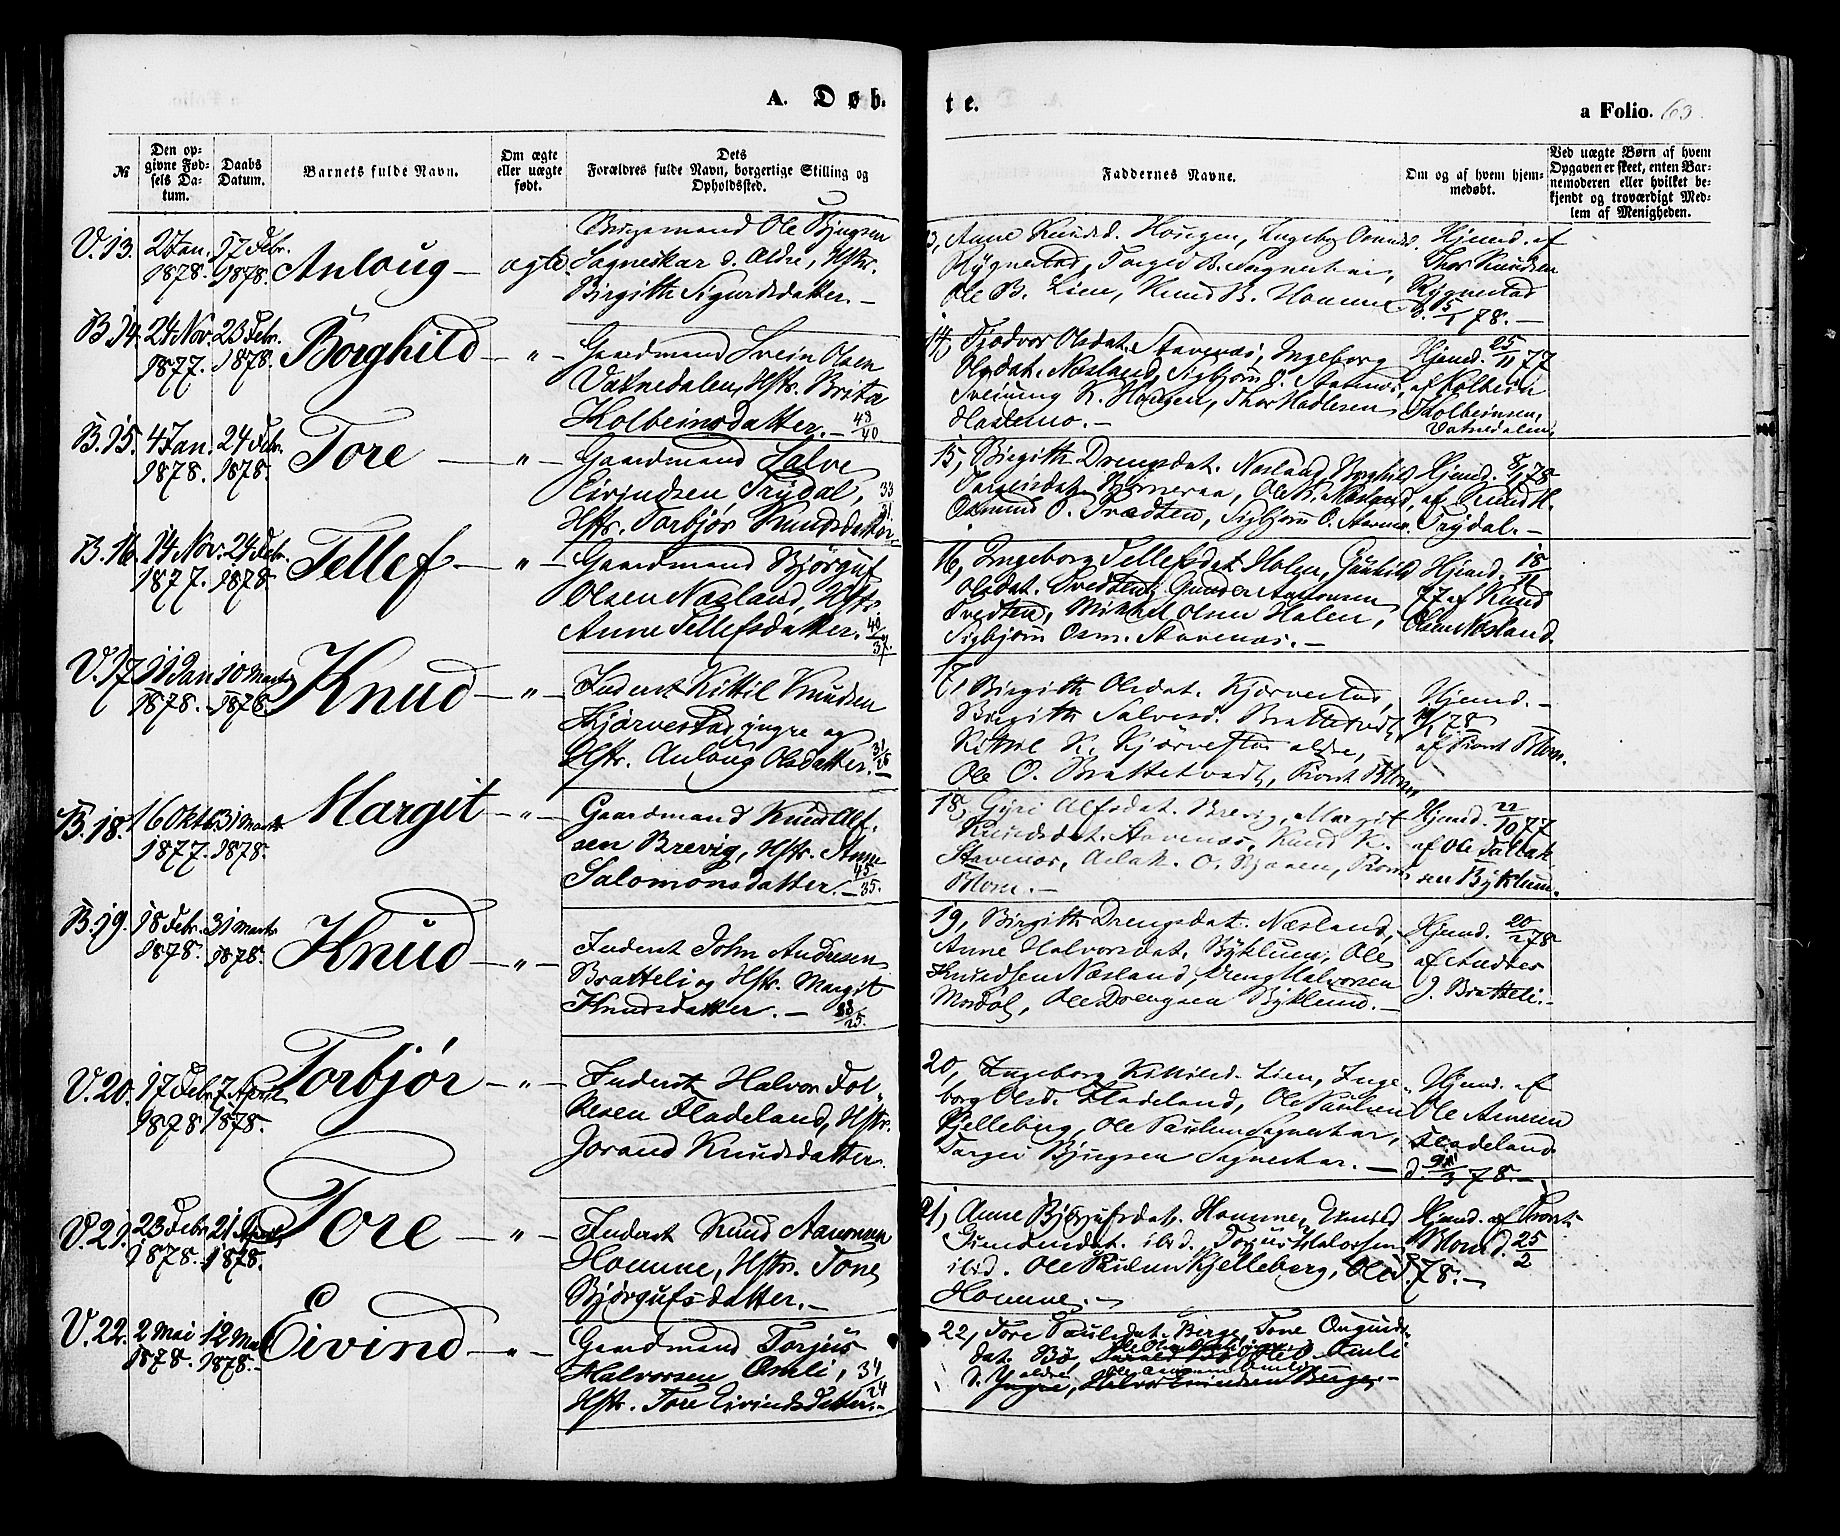 A. Døb-
te.
a Folio. 63.
№
Den op-
givne Fød-
sels Da-
tum.
Daabs
Datum.
Barnets fulde Navn.
Om ægte
eller uægte
født.
Dets
Forældres fulde Navn, borgertige Stilling og
Opholdssted.
Faddernes Navne.
Om og af hvem hjem-
medøbt.
Ved uægte Børn af hvem
Opgaven er skeet, enten Bar-
nemoderen eller hvilket be-
kjendt og troværdigt Med-
lem af Menigheden.
V. 13. 2 Jan. 1878. 17 Febr. 1878. Anloug — ægte.
Ole Bjugsen
Sagneskar d. Ældre, Hstr.
Birgith Sigurdsdatter. —
13, Anne Knudsd. Hougen, Ingebg
Rygnestad, Torged B.
Ole B. Lien, Knud B. Homme
Hjemd. af
Thor Knudsen
Rygnestad
78. —
B. 14. 24 Nov. 1877. 23 Febr. 1878. Borghild — " —
Gaardmand Svein Olsen
Vatnedalen, Hstr. Brita
Kolbeinsdatter. — 43/40
14, Tjodvor Olsdat. Stavenæs, Ingeborg
Olsdat. Næsland, Sigbjørn O. Stavenæs,
Sveinung K. Hougen, Thor Hadlesen
Hartemo. —
Hjemd. 25/11 77
af Kolbein
Kolbeinsen,
Vatnedalen,
B. 15. 4 Jan. 1878. 24 Febr. 1878. Tore — " —
Gaardmand Salve
Eivindsen Trydal, 33/31.
Hstr. Torbjør Knudsdatter. —
15, Birgith Drengsdat. Næsland, Borghild
Bjørneraa, Ole K. Næsland,
Osmund O. Trædten, Sigbjørn O. Stavenæs.
Hjemd. 8/1 78
af Knud H.
Trydal. —
B. 16. 14 Nov. 1877. 24 Febr. 1878. Tellef — " —
Gaardmand Bjørguf
Olsen Næsland, Hstr.
Anne Tellefsdatter. 40/37.
16, Ingeborg Tellefsdat. Holen, Gunhild
Olsdat. Tvedten, Gunder Aanonsen
Tvedten, Mikkel Olsen Holen,
Sigbjørn Osm. Stavenæs. —
Hjemd. 18/11
77 af Knud
Olsen Næsland.
V. 17. 11 Jan 1878. 10 Marts 1878. Knud — " —
Inderst Kittil Knudsen
Kjørvestad yngre og
Hstr. Anloug Olsdatter. 31/26 —
17, Birgith Olsdat. Kjørvestad,
Birgith Salvesd. Brattetvedt,
Kittil K. Kjørvestad ældre,
Ole O. Brattetvedt, Provst Blom
Hjemd. —
78
af Provst Blom.
B. 18. 16 Okt. 1877. 31 Marts 1878. Margit — " —
Gaardmand Knud Alf-
sen Brevig, Hstr. Anne
Salomonsdatter. — 45/35.
18, Gyri Alfsdat. Brevig, Margit
Knudsdat. Stavenæs, Knud K.
Stavenæs, Aslak O. Bjaaen, Provst
Blom. —
Hjemd. 22/10 77
af Ole Tallak-
sen Byklum.
B. 19. 18 Febr. 1878. 31 Marts 1878. Knud — " —
Inderst John Andersen
Bratteli og Hstr. Margit
Knudsdatter. — 33/25.
19, Birgith Drengsdat. Næsland,
Anne Halvorsdat. Byklum, Ole
Knudsen Næsland, Dreng Halvorsen
Mosdøl, Ole Drengsen Byklum. —
Hjemd. 20/2 78
af Andres
J. Bratteli. —
V. 20. 17 Febr 1878. 7 April 1878. Torbjør — " —
Inderst Halvor Fol-
kesen Fladeland, Hstr.
Jorand Knudsdatter.
20, Ingeborg Kittilsd. Lien, Inge-
borg Olsd. Fladeland, Ole Paulsen
Kjelleberg, Ole Paulsen Sagneskar,
Targei Bjugsen Sagneskar. —
Hjemd. af
Ole Arnesen
Fladeland
78. —
V. 21. 23 Febr 1878. 21 April 1878. Tore — " —
Inderst Knud Aanonsen
Homme, Hstr. Tone
Bjørgufsdatter. —
21, Anne Bjørgufsdat. Homme, Gunild
ibid. Torjus Halvorsen
ibid. Ole Paulsen Kjelleberg, Ole
Homme. —
Hjemd. af Provst
Blom d. 25/2
78. —
V. 22. 2 Mai 1878. 12 Mai 1878. Eivind — " —
Gaardmand Torjus
Halvorsen Omli, 34/24
Hstr. Tore Eivindsdatter. —
22, Tore Paulsdat. Berge, Tone
dat. Bø, Omli
ældre,
Yngre, Halvor Eivindsen Berge. —